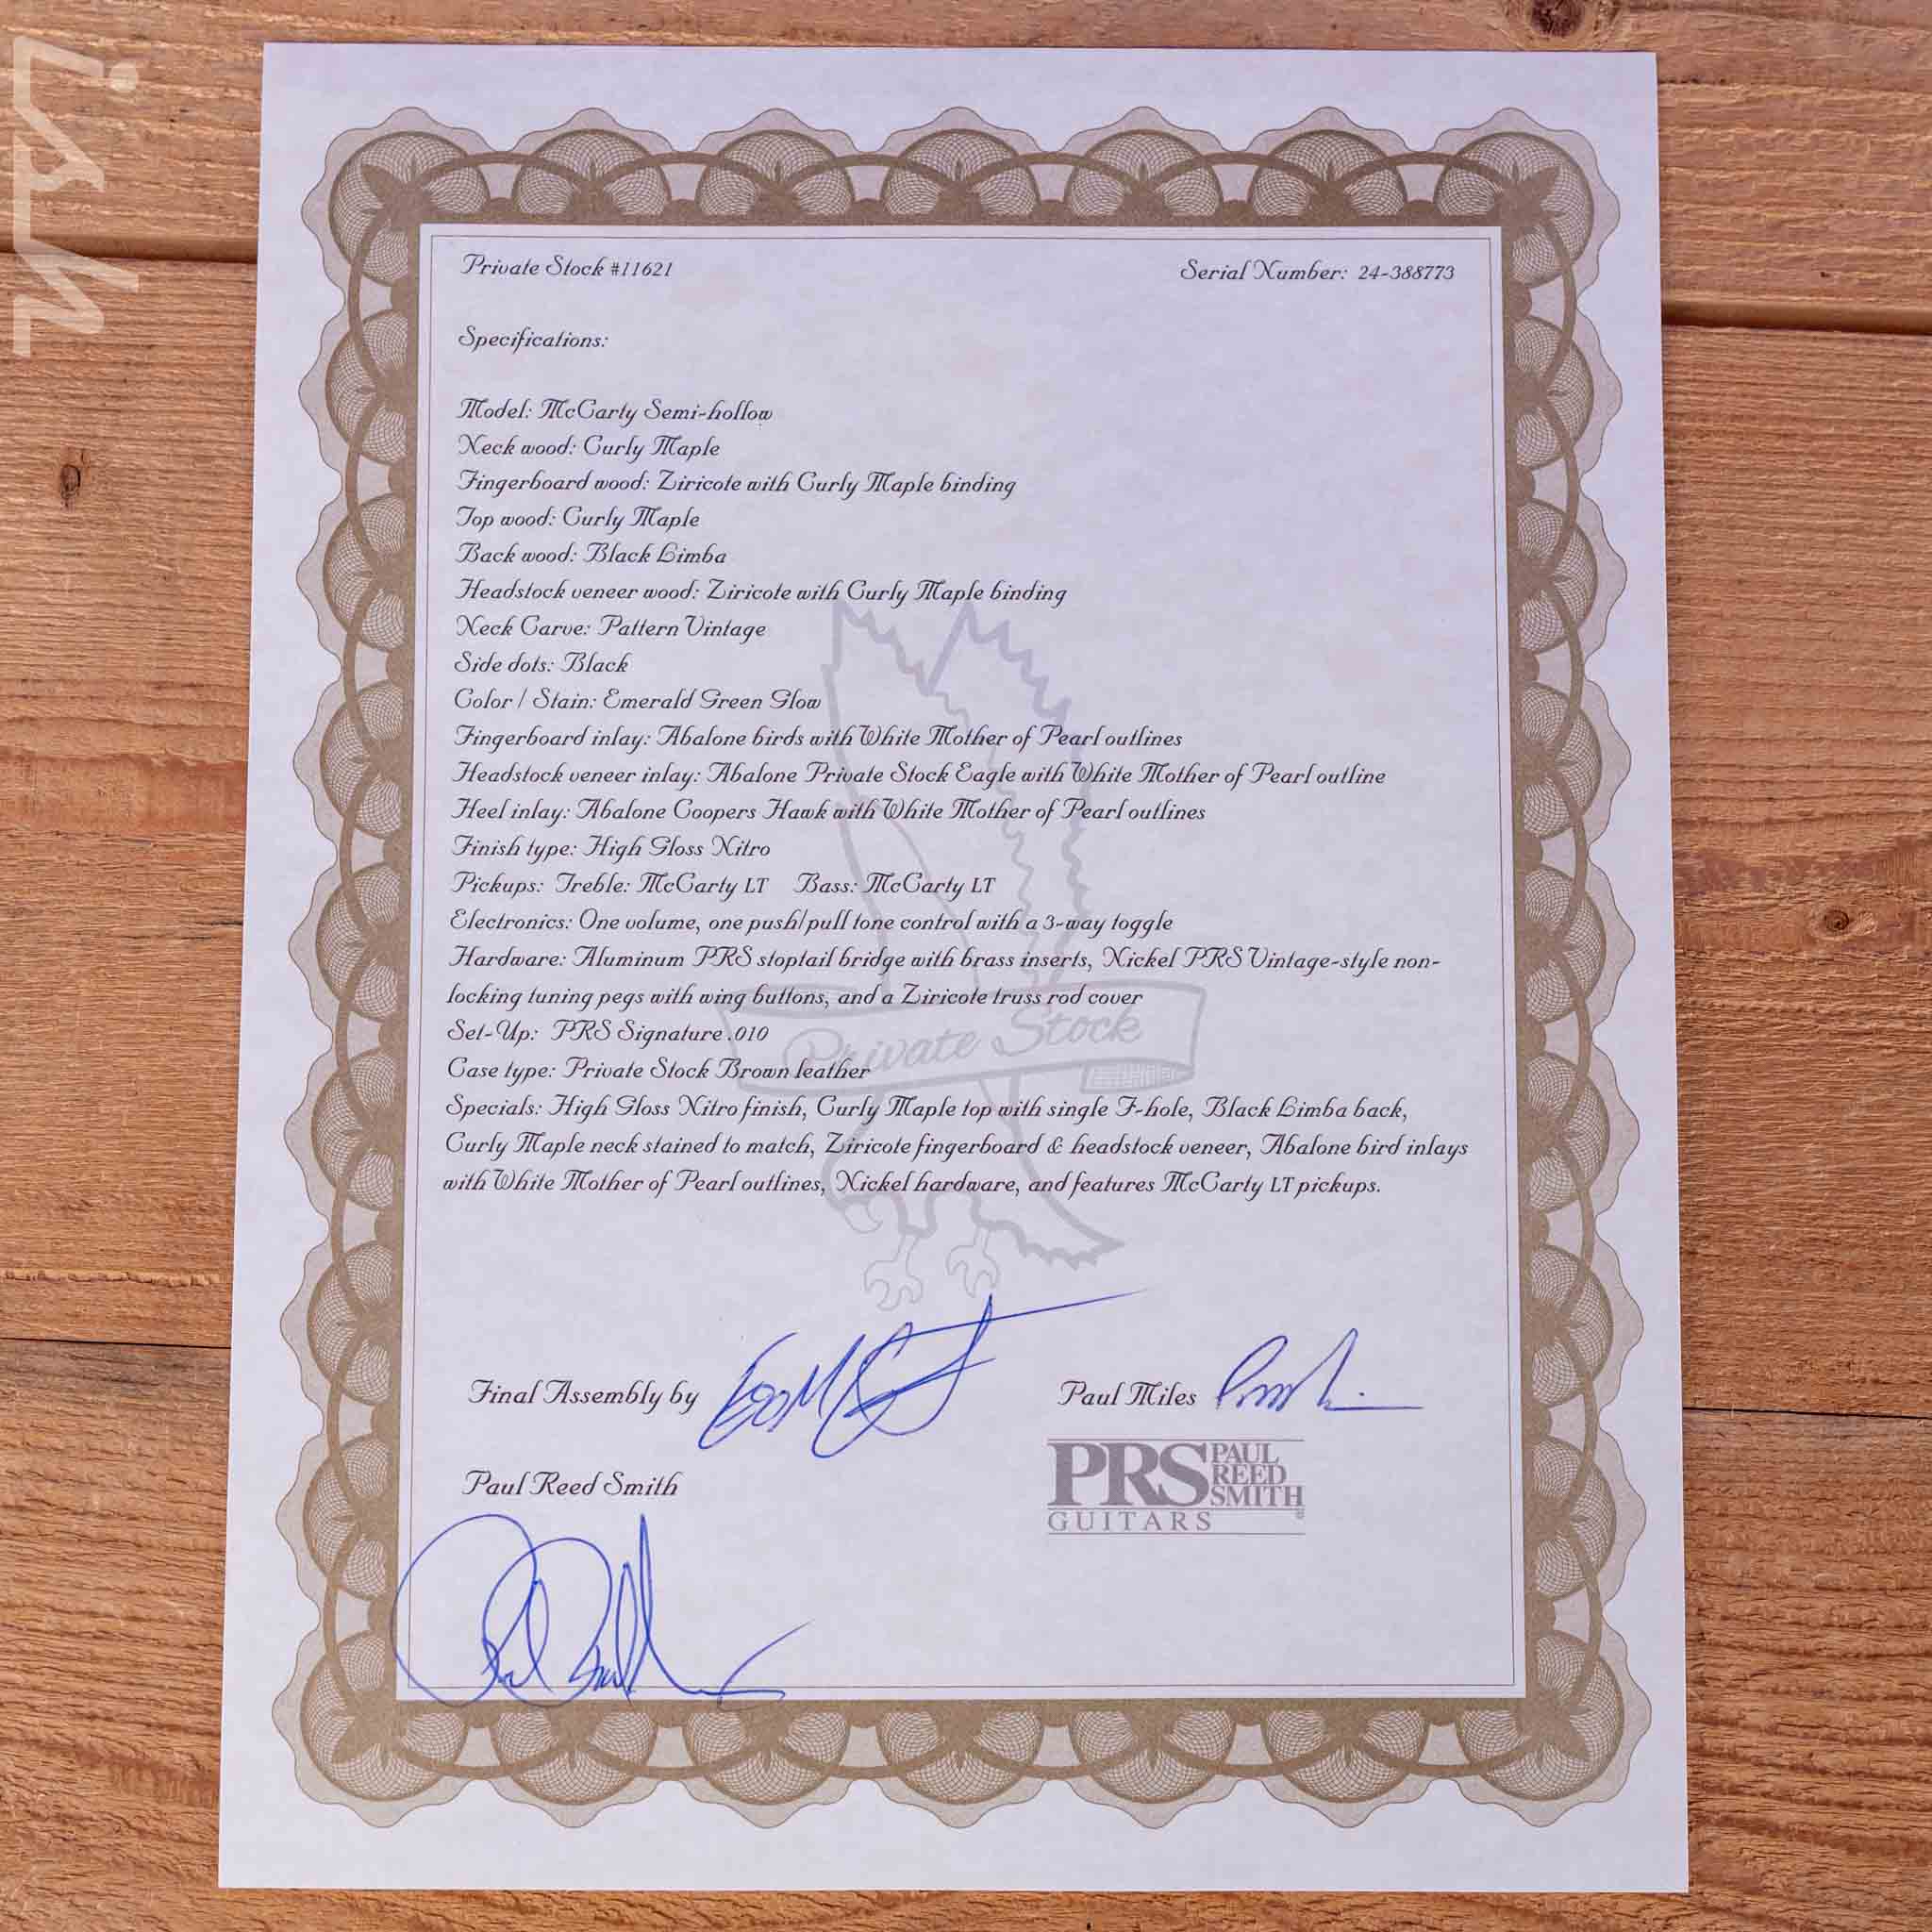 Private Stock #11621
Serial Number: 24-388773
Specifications:
Model: McCarty Semi-hollow
Neck wood: Curly Maple
Fingerboard wood: Ziricote with Curly Maple binding
Top wood: Curly Maple
Back wood: Black Limba
Headstock veneer wood: Ziricote with Curly Maple binding
Neck Carve: Pattern Vintage
Side dots: Black
Color / Stain: Emerald Green Glow
Fingerboard inlay: Abalone birds with White Mother of Pearl outlines
Headstock veneer inlay: Abalone Private Stock Eagle with White Mother of Pearl outline
Heel inlay: Abalone Coopers Hawk with White Mother of Pearl outlines
Finish type: High Gloss Nitro
Pickups: Treble: McCarty LT Bass: McCarty LT
Electronics: One volume, one push/pull tone control with a 3-way toggle
Hardware: Aluminum PRS stoptail bridge with brass inserts, Nickel PRS Vintage-style non-
locking tuning pegs with wing buttons, and a Ziricote truss rod cover
Set-Up: PRS Signature .010
Private Stock
Case type: Private Stock Brown leather
Specials: High Gloss Nitro finish, Curly Maple top with single F-hole, Black Limba back,
Curly Maple neck stained to match, Ziricote fingerboard & headstock veneer, Abalone bird inlays
with White Mother of Pearl outlines, Nickel hardware, and features McCarty LT pickups.
Final Assembly by
Paul Miles
Paul Reed Smith
PRS PAUL REED SMITH
GUITARS